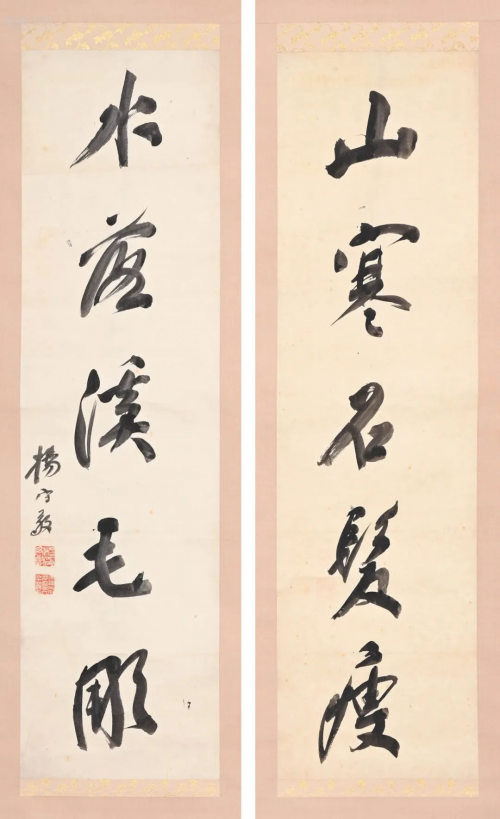 山寒石髮瘦
水落溪毛彫
楊守敬